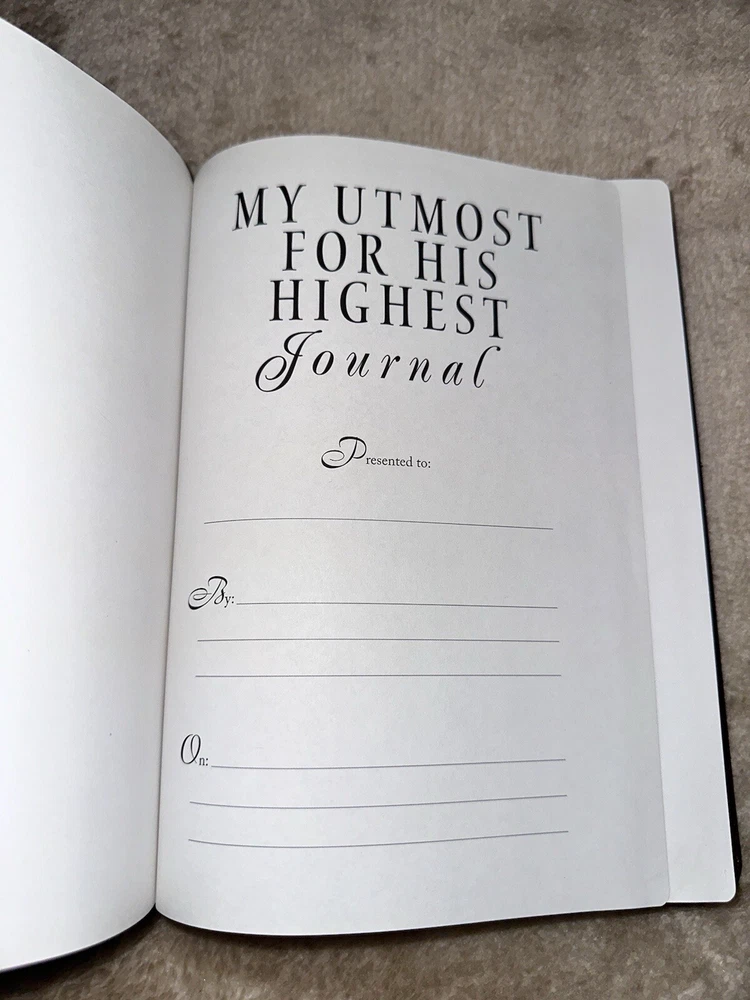 MY UTMOST
FOR HIS
HIGHEST
Journal
Presented to:
By:
On: